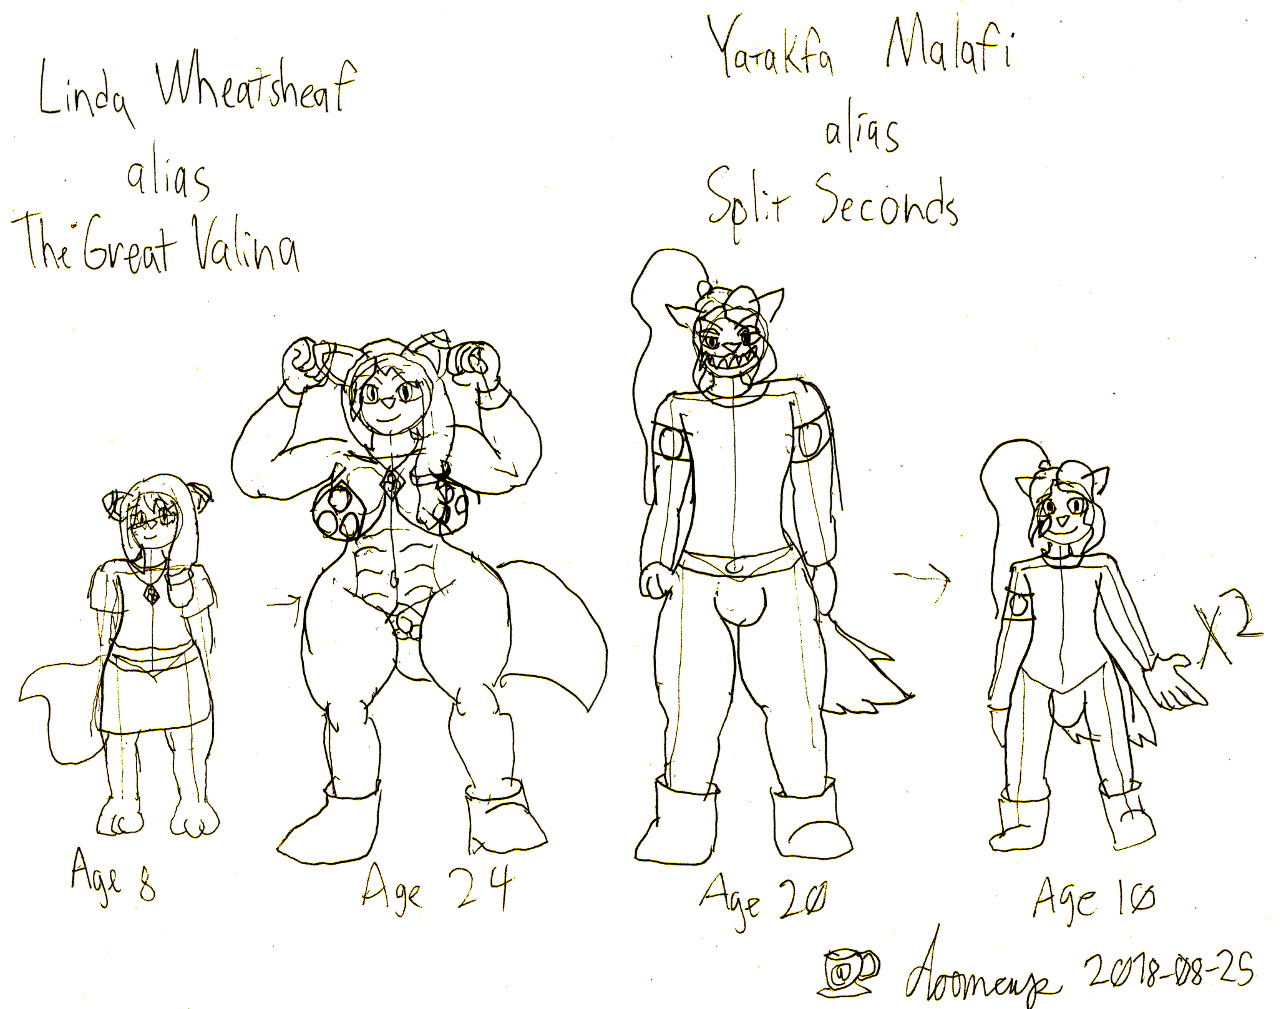 Linda Wheatsheaf
alias
The Great Valina
Yarakfa Malafi
alias
Split Seconds
X2
Age 8
Age 24
Age 20
Age 10
doomcup 2018-08-25